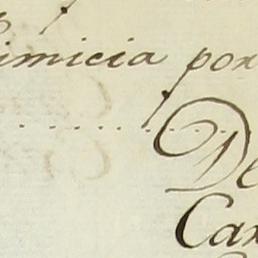 imicia por
De
Car